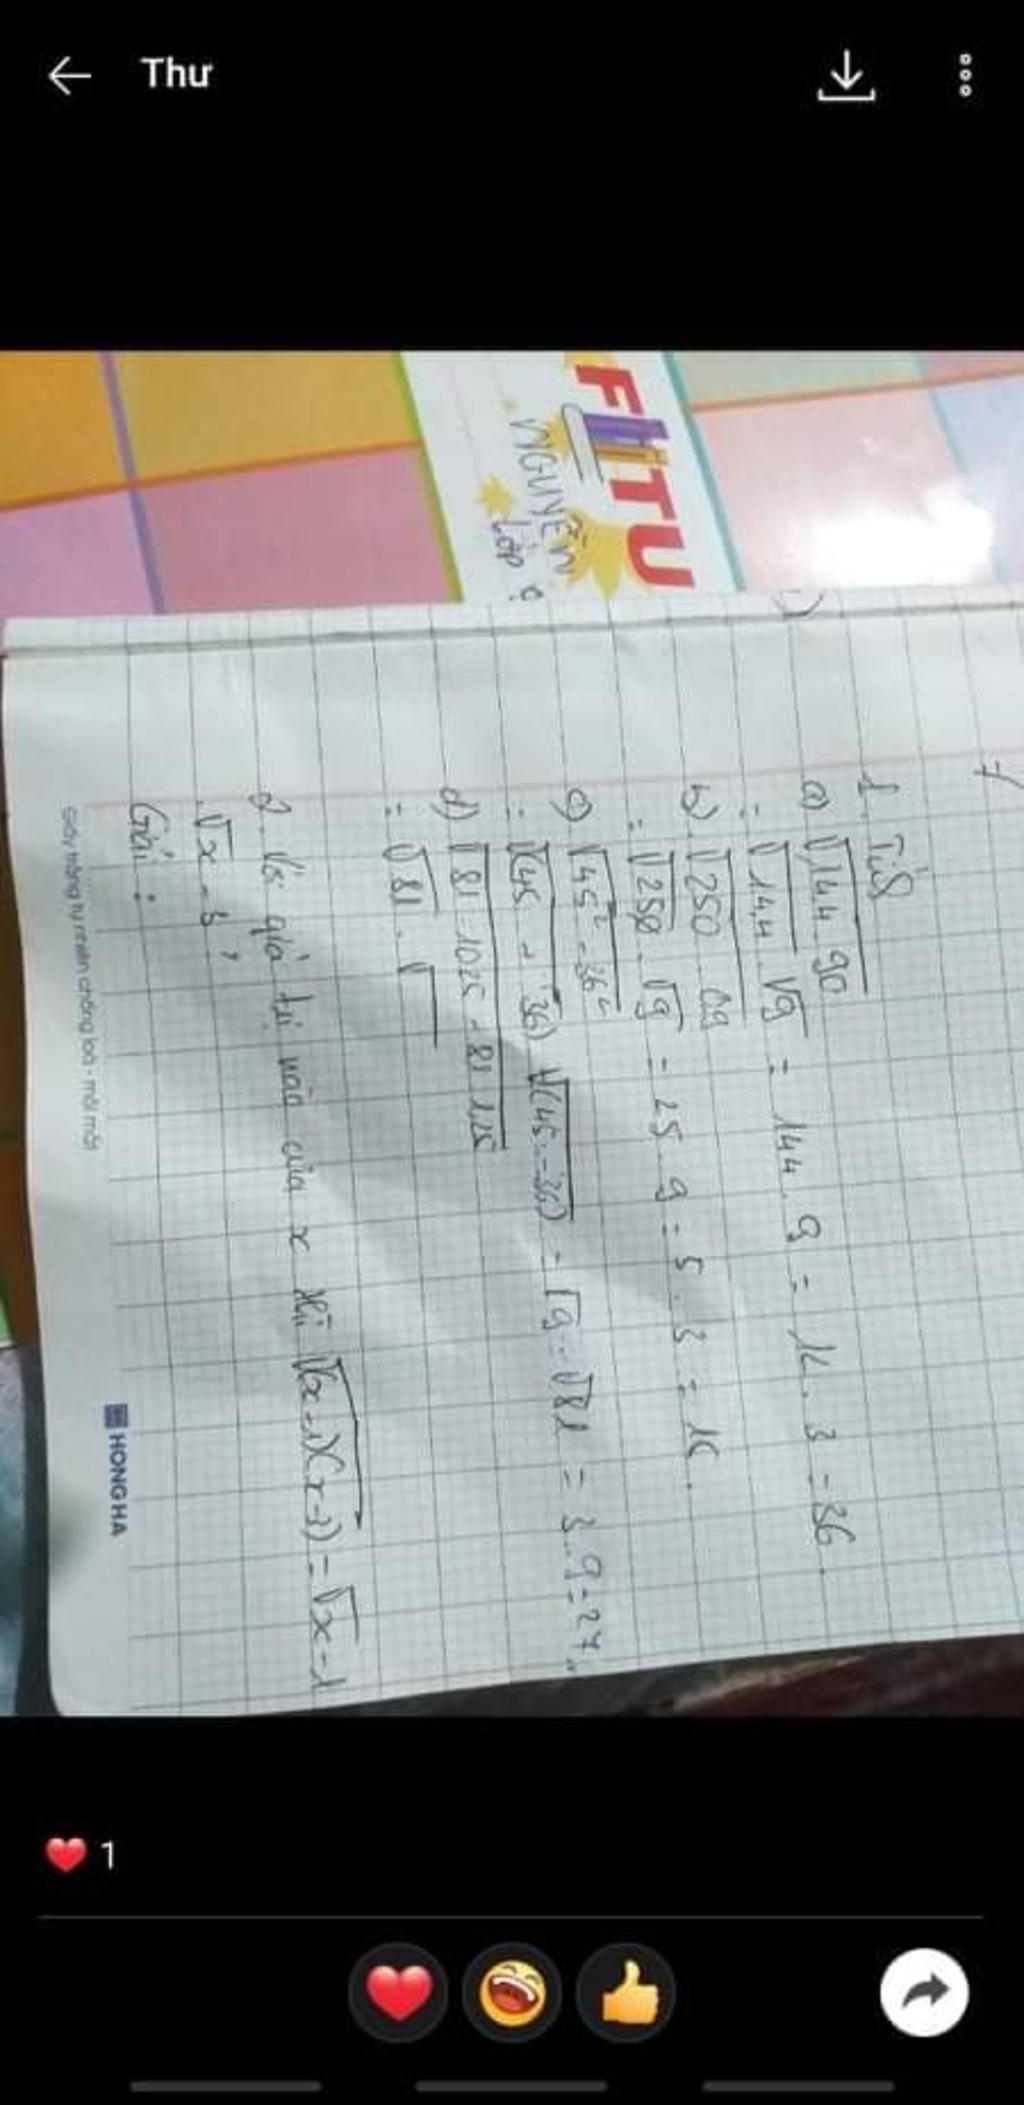 Thư
FIITU
NGUYÊN
Lớp 9
1. Tính
a) √14,4 . 90
= √14,4 . √9 = 144 . 9 = 12 . 3 = 36
b) √250 . 0,9
= √250 . √9 = 25 . 9 = 5 . 3 = 15.
c) √45² - 36²
= √(45 + 36) √(45 - 36) = √9 . √81 = 3 . 9 = 27
d) √81 . 1025 - 81 . 1,25
= √81 . √
2. Với giá trị nào của x thì √(x-1)(x-3) = √x-1
. √x-3 ?
Giải :
Giấy trắng tự nhiên chống loá - mỏi mắt
HONG HA
1